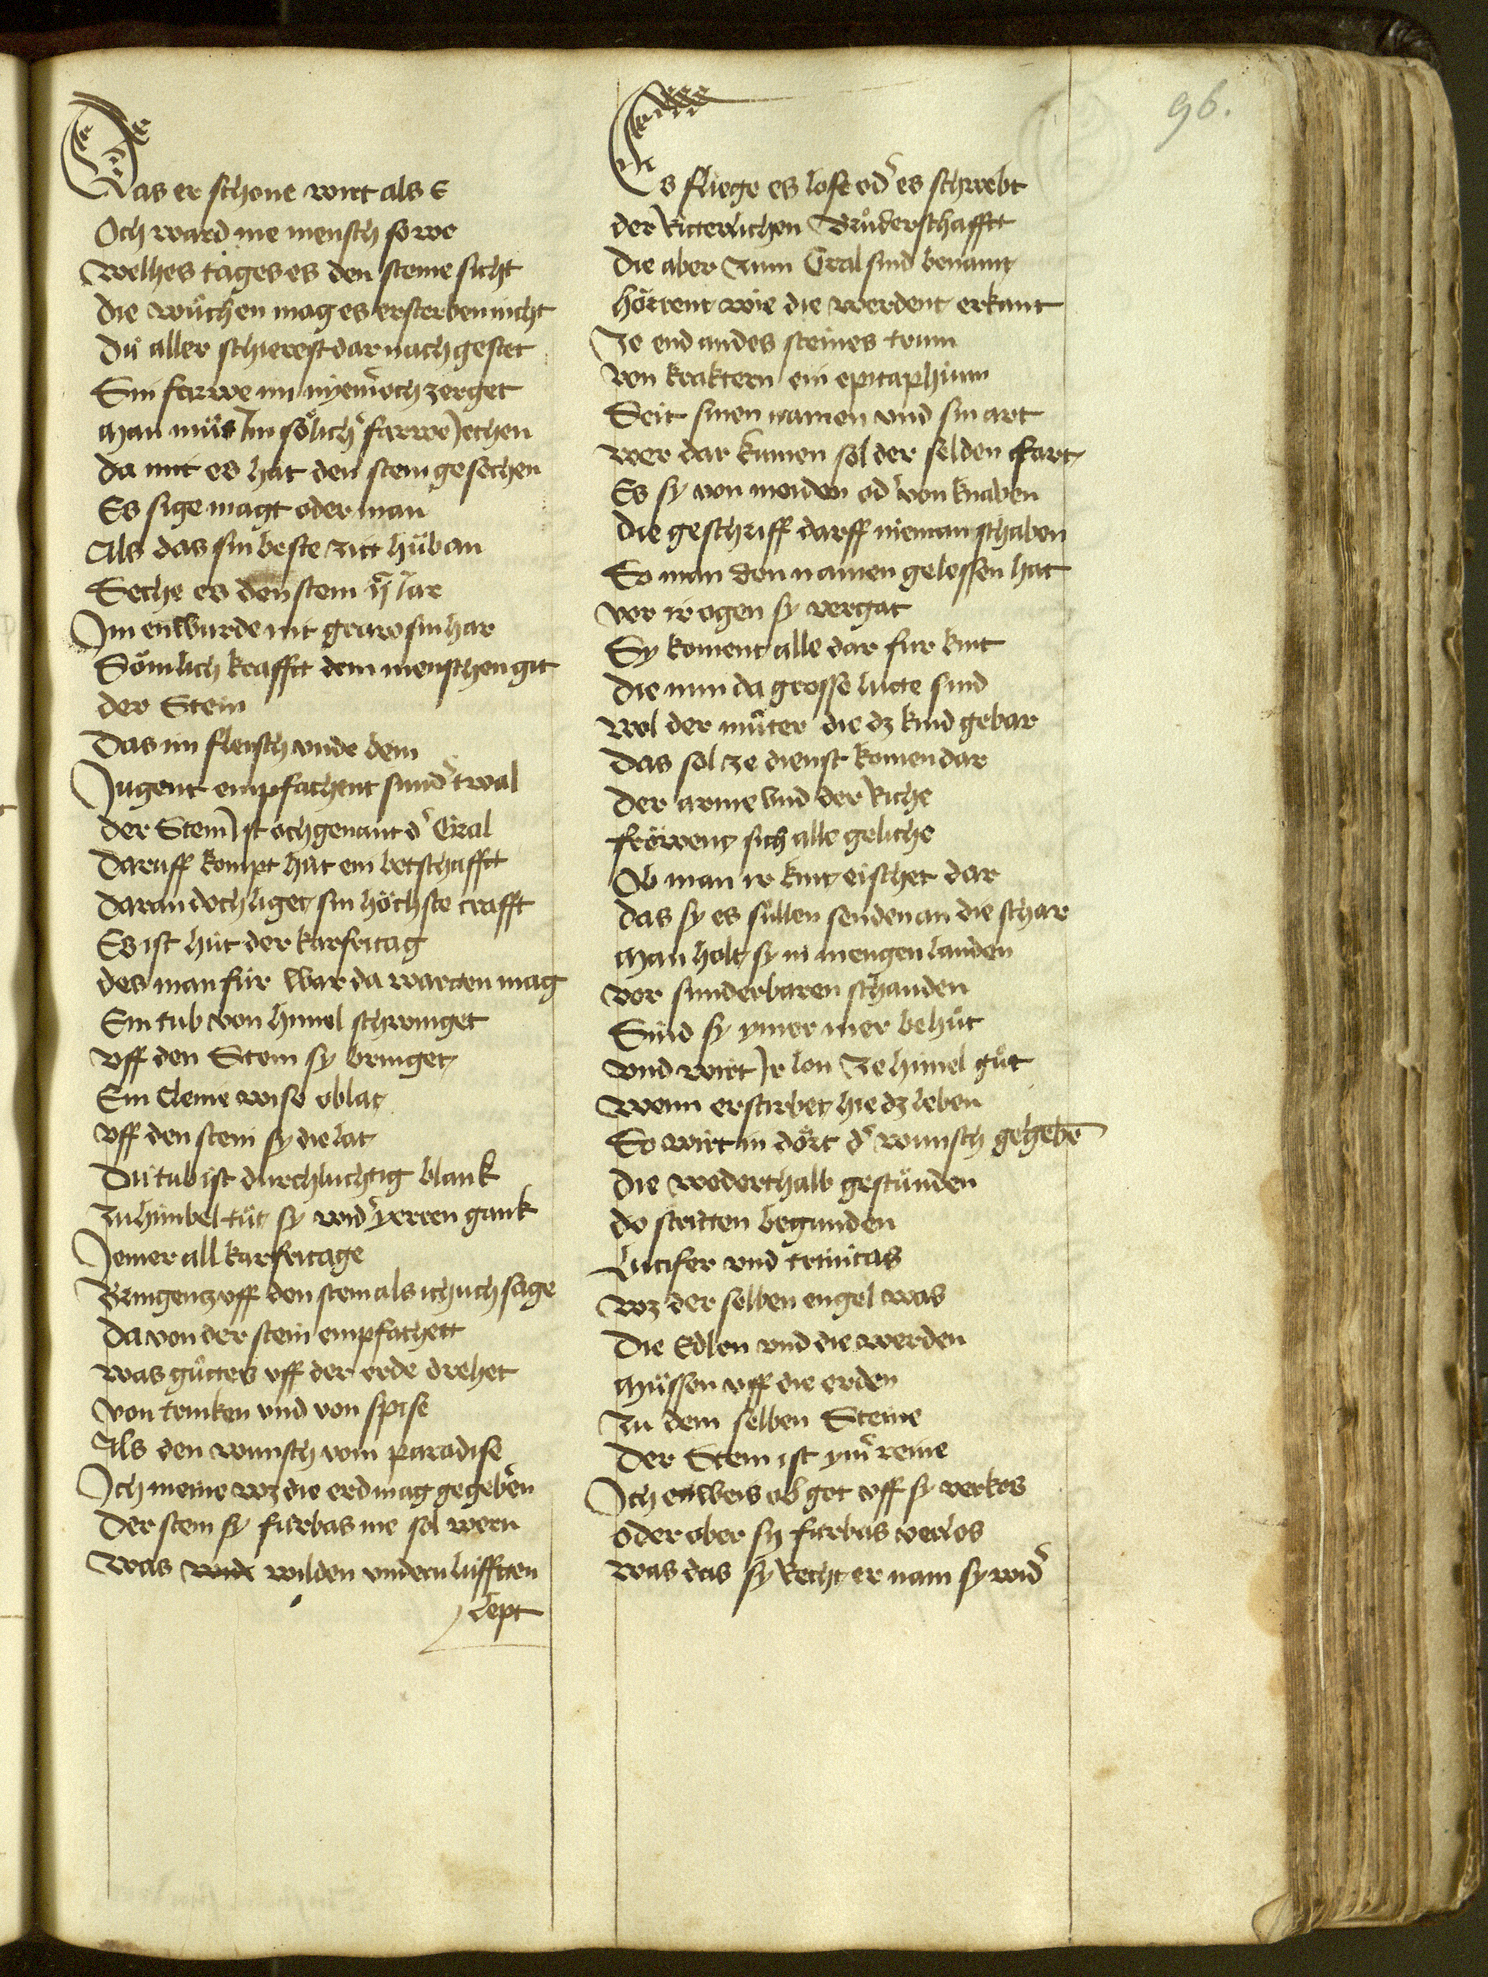 96.
Das er schone wirt als E
Och ward nie mensch so we
Welhes tages es den steine sicht
Die wuͦchen mag es ersterben nicht
Du aller schierest dar nach gestet
Sin farwe im nyem͛ och zerget
Man muͦs Im soͤlich͛ farwe Jechen
Da mit es hat den stein gesechen
Es sige magt oder man
Als das sin beste zitt huͦb an
Seche es den stein ij͛ iar
Im enwurde nit graw sin har
Soͤmlich krafft dem menschen git
der Stein
Das im fleisch vnde bein
Jugent empfachent sund͛ twal
Der Stein Ist och genant d͛ Gral
Daruff kompt huͤt ein botschafft
Daran doch liget sin hoͤchste crafft
Es ist huͤt der karfritag
des man fuͤr war da warten mag
Ein tub von himel schwinget
Vff den Stein sy bringet
Ein Cleine wise oblat
Vff den stein sy die lat
Die tub ist durchluchtig blank
Zu himbel tuͦt sy wid͛ yerren gank
Jemer all karfritage
Bringentz vff den stein als ich uch sage
Da von der stein empfachett
Was guͦttes vff der erde drehet
Von trinken vnd von spise
Als den wunsch vom paradise
Ich meine wz die erd mag gegeb͛en
Der stein sy furbas me sol wern
Was wide wilden vndern lufften
lept
Es fliege es lofe od͛ es schwebt
der Ritterlichen Bruͦderschafft
Die aber zum Gral sind benant
hoͤrent wie die werdent erkant
Ze end an des steines trum
Von kraktern ein epitaphium
Seit sinen namen vnd sin art
Wer dar kumen sol der selden fart
Es sy von meiden od͛ von knaben
Die geschriff darff nieman schaben
So man den namen gelessen hat
Vor ir ogen sy vergat
Sy koment alle dar fur kint
Die nun da grosse lutte sind
Wol der muͦter die dz kind gebar
Das sol ze dienst komen dar
Der arme Vnd der Riche
froͤwent sich alle geliche
Ob man ir kint eischet dar
Das sy es sullen senden an die schar
Man holt sy in mengen landen
Vor sunderbaren schanden
Sind sy ymer mer behuͦt
Vnd wirt Ir lon Ze himel guͦt
Wenn erstirbet hie dz leben
So wirt in dort d͛ wunsch gegebē
Die wederthalb gestuͦnden
do stritten begunden
Lucifer vnd trinitas
Wz der selben engel was
Die Edlen vnd die werden
Muͦssen vff die erden
Zu dem selben Steine
Der Stein ist ym͛ reine
Ich enweis ob got vff sy verkos
Oder ob er sy furbas verlos
Was das sy Recht er nam sy wid͛